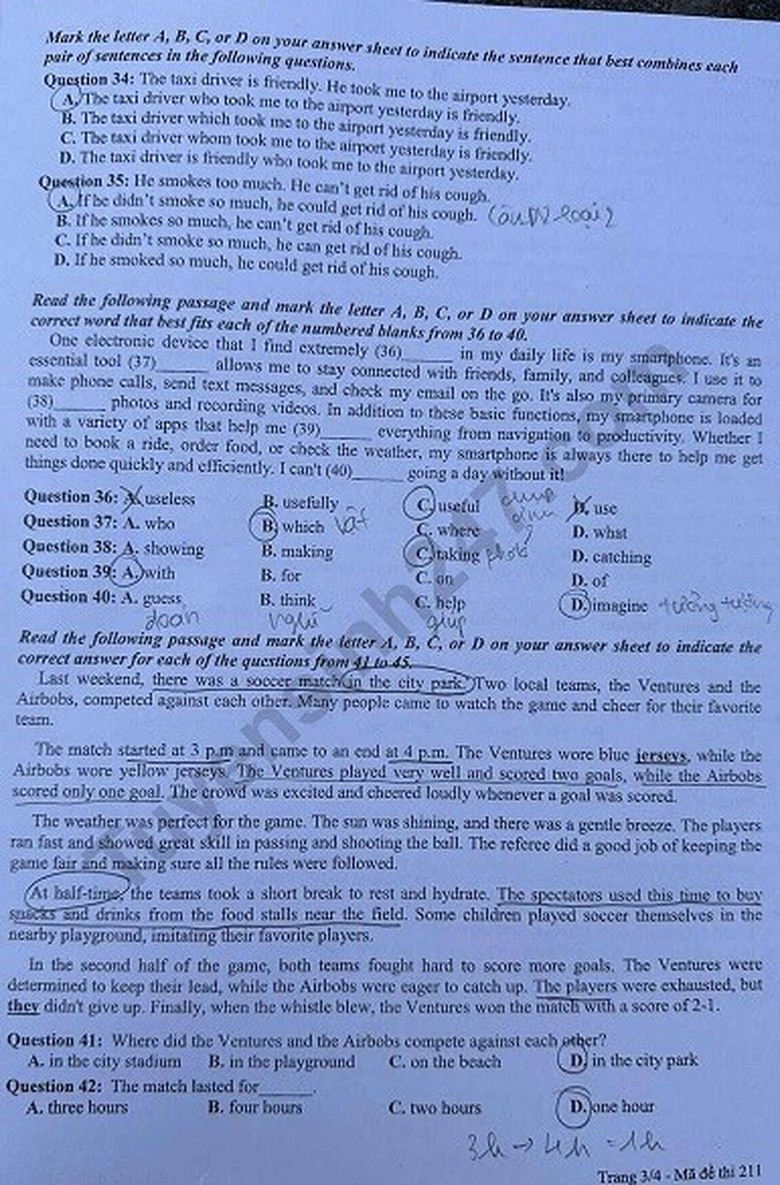 Mark the letter A, B, C, or D on your answer sheet to indicate the sentence that best combines each
pair of sentences in the following questions.
Question 34: The taxi driver is friendly. He took me to the airport yesterday.
A. The taxi driver who took me to the airport yesterday is friendly.
B. The taxi driver which took me to the airport yesterday is friendly.
C. The taxi driver whom took me to the airport yesterday is friendly.
D. The taxi driver is friendly who took me to the airport yesterday.
Question 35: He smokes too much. He can't get rid of his cough.
A. If he didn't smoke so much, he could get rid of his cough. loại 2
B. If he smokes so much, he can't get rid of his cough.
C. If he didn't smoke so much, he can get rid of his cough.
D. If he smoked so much, he could get rid of his cough.
Read the following passage and mark the letter A, B, C, or D on your answer sheet to indicate the
correct word that best fits each of the numbered blanks from 36 to 40.
One electronic device that I find extremely (36)______ in my daily life is my smartphone. It's an
essential tool (37)______ allows me to stay connected with friends, family, and colleagues. I use it to
make phone calls, send text messages, and check my email on the go. It's also my primary camera for
(38)______ photos and recording videos. In addition to these basic functions, my smartphone is loaded
with a variety of apps that help me (39)______ everything from navigation to productivity. Whether I
need to book a ride, order food, or check the weather, my smartphone is always there to help me get
things done quickly and efficiently. I can't (40)______ going a day without it!
Question 36: A. useless B. usefully C. useful D. use
Question 37: A. who B. which vật C. where D. what
Question 38: A. showing B. making C. taking photo D. catching
Question 39: A. with B. for C. on D. of
Question 40: A. guess B. think C. help D. imagine tưởng tượng
đoán nghĩ giúp
Read the following passage and mark the letter A, B, C, or D on your answer sheet to indicate the
correct answer for each of the questions from 41 to 45.
Last weekend, there was a soccer match in the city park. Two local teams, the Ventures and the
Airbobs, competed against each other. Many people came to watch the game and cheer for their favorite
team.
The match started at 3 p.m and came to an end at 4 p.m. The Ventures wore blue jerseys, while the
Airbobs wore yellow jerseys. The Ventures played very well and scored two goals, while the Airbobs
scored only one goal. The crowd was excited and cheered loudly whenever a goal was scored.
The weather was perfect for the game. The sun was shining, and there was a gentle breeze. The players
ran fast and showed great skill in passing and shooting the ball. The referee did a good job of keeping the
game fair and making sure all the rules were followed.
At half-time, the teams took a short break to rest and hydrate. The spectators used this time to buy
snacks and drinks from the food stalls near the field. Some children played soccer themselves in the
nearby playground, imitating their favorite players.
In the second half of the game, both teams fought hard to score more goals. The Ventures were
determined to keep their lead, while the Airbobs were eager to catch up. The players were exhausted, but
they didn't give up. Finally, when the whistle blew, the Ventures won the match with a score of 2-1.
Question 41: Where did the Ventures and the Airbobs compete against each other?
A. in the city stadium B. in the playground C. on the beach D. in the city park
Question 42: The match lasted for______.
A. three hours B. four hours C. two hours D. one hour
3h → 4h = 1h
Trang 3/4 - Mã đề thi 211